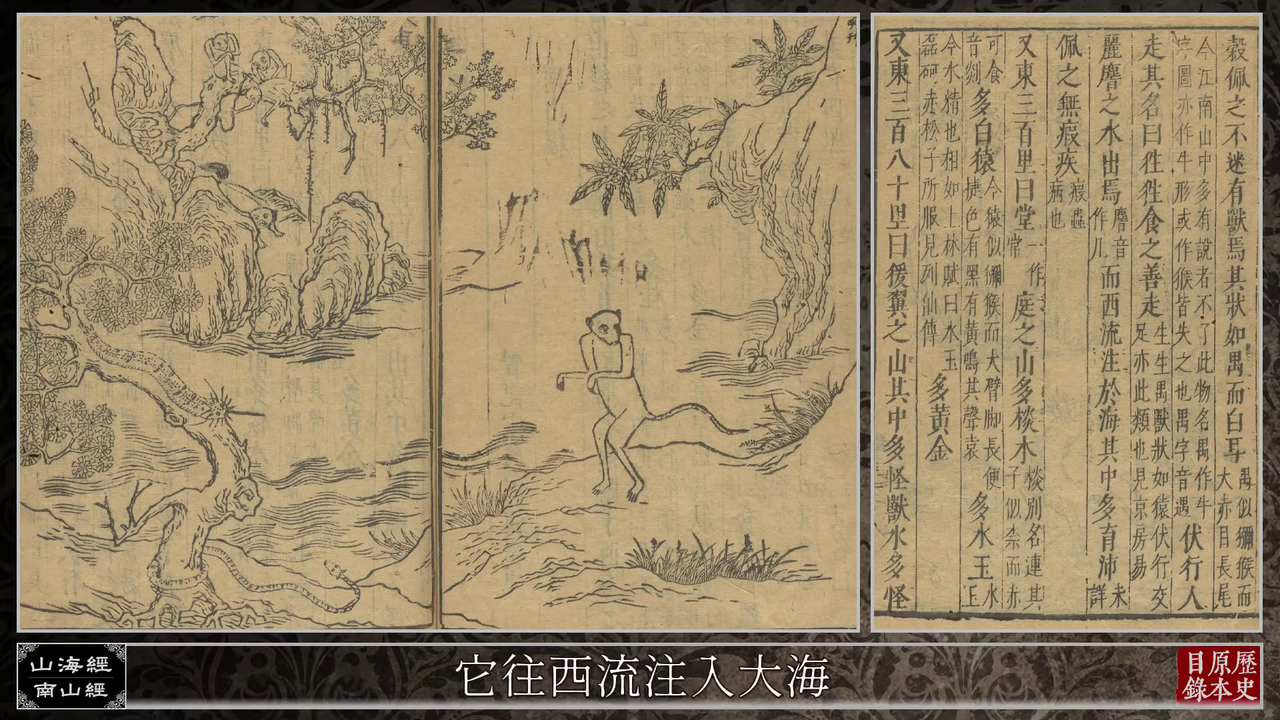 穀佩之不迷有獸焉其狀如禺而白耳禺似獼猴而大赤目長尾
今江南山中多有說者不了此物名禺作牛字圖亦作牛形或作猴皆失之也禺字音遇伏行人
走其名曰狌狌食之善走生生禺獸狀如猿伏行交足亦此類也見京房易
麗麐之水出焉麐音作几而西流注於海其中多育沛未詳
佩之無瘕疾瘕蟲病也
又東三百里曰堂一作常庭之山多棪木棪別名連其子似柰而赤
可食音剡多白猿今猿似獼猴而大臂脚長便捷色有黑有黃鳴其聲哀多水玉水玉
今水精也相如上林賦曰水玉磊砢赤松子所服見列仙傳多黃金
又東三百八十里曰猨翼之山其中多怪獸水多怪
山海經
南山經
它往西流注入大海
歷史
原本
目錄